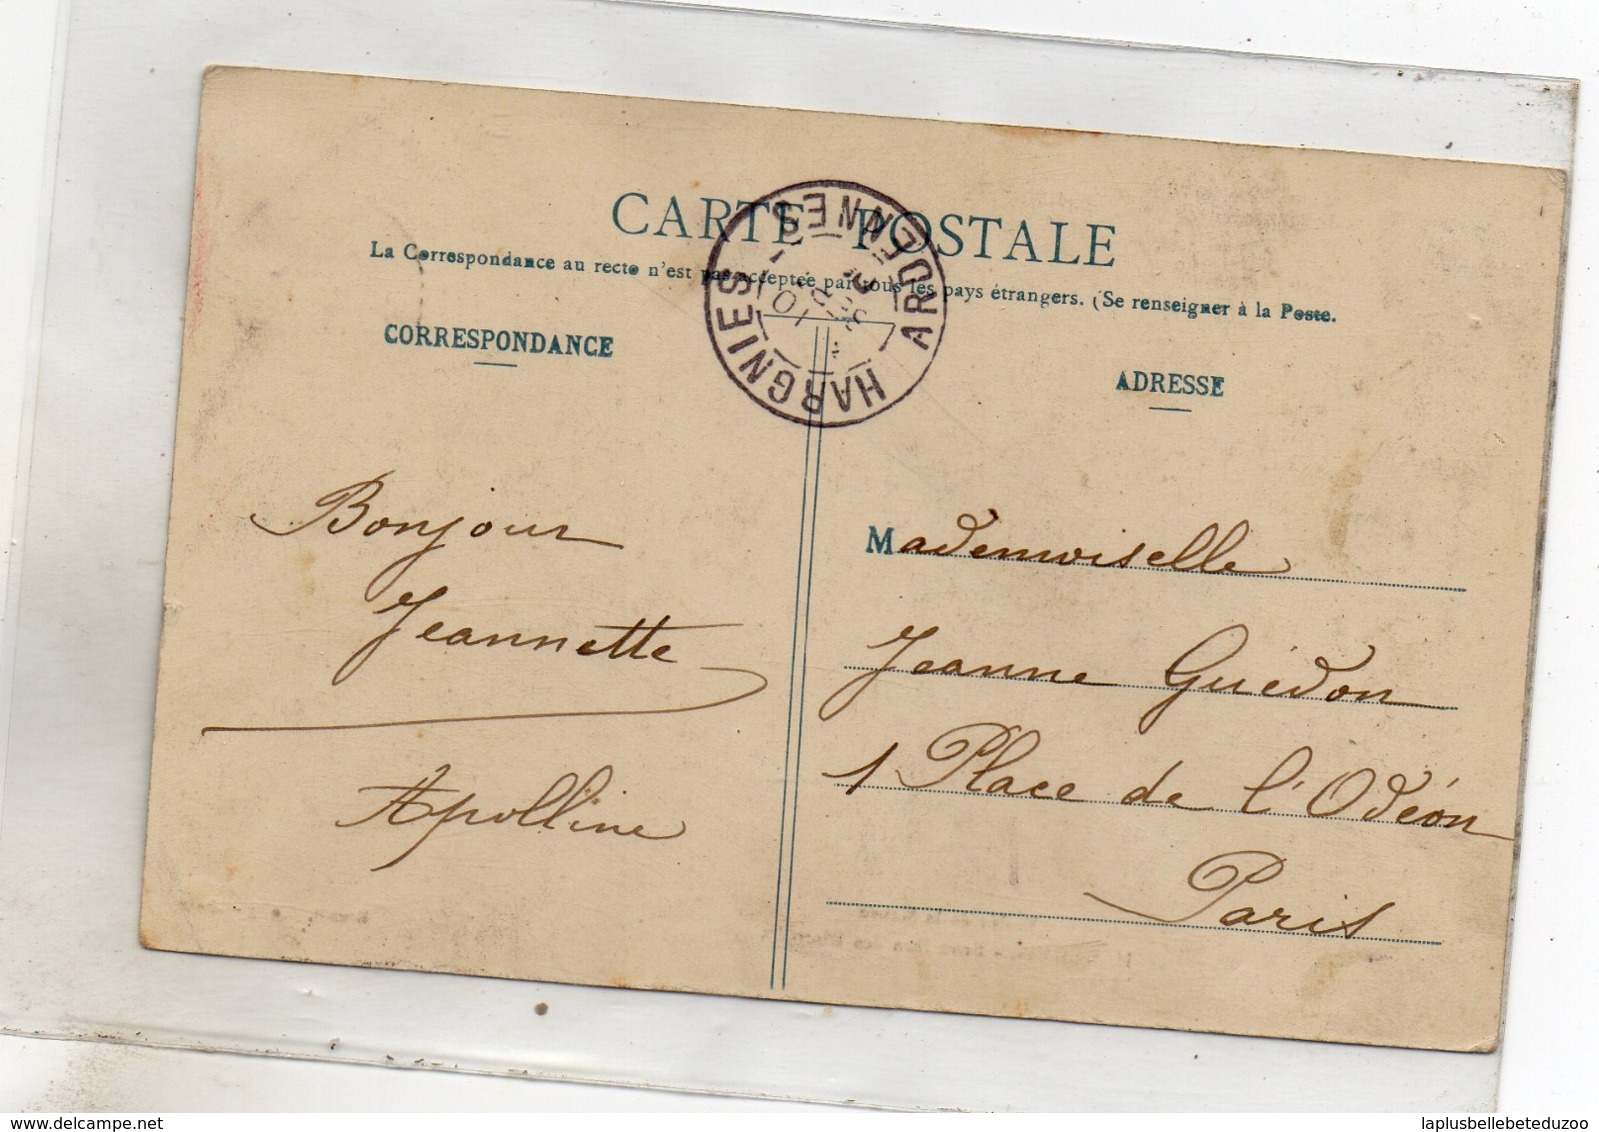 CARTE POSTALE
La Correspondance au recto n'est pas acceptée par tous les pays étrangers. (Se renseigner à la Poste.
CORRESPONDANCE
ADRESSE
HARGNIES
ARDENNES
Bonjour
Jeannette
Apolline
Mademoiselle
Jeanne Guédon
1 Place de l'Odéon
Paris
laplusbellebeteduzoo